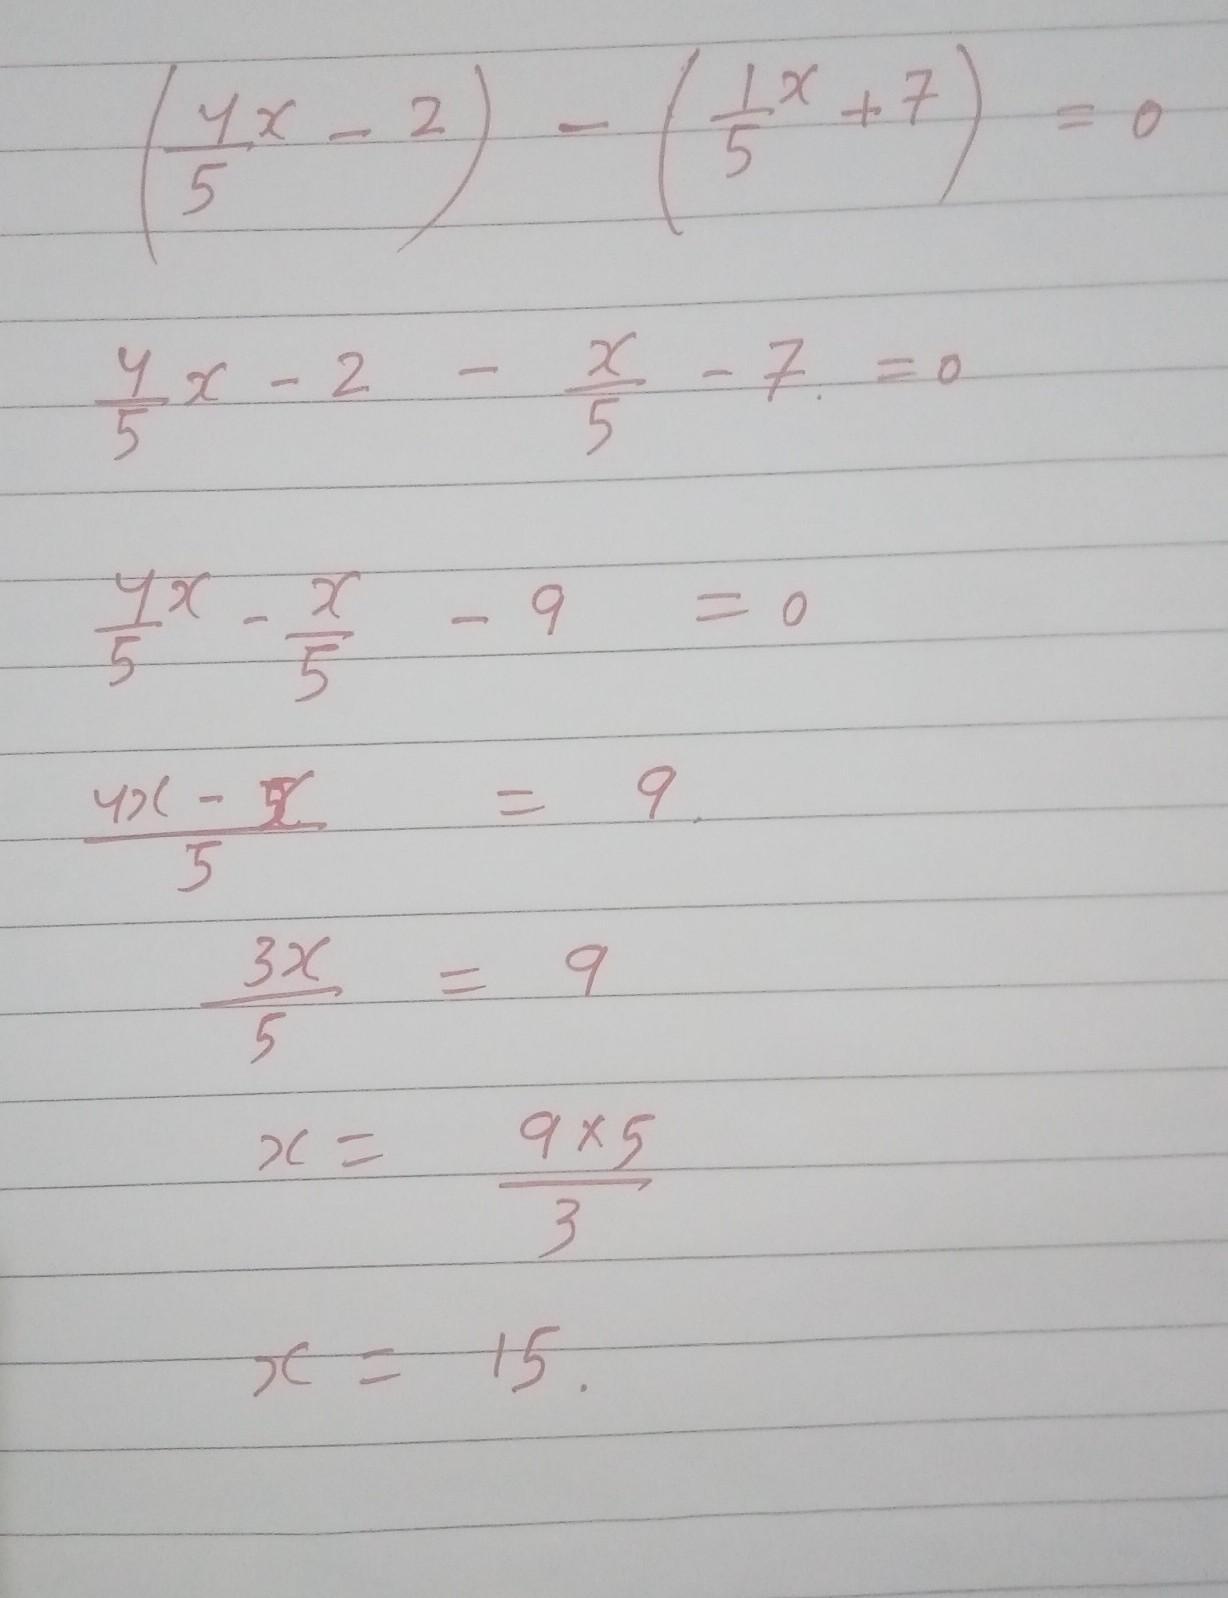 (4/5 x - 2) - (1/5 x + 7) = 0
4/5 x - 2 - x/5 - 7. = 0
4/5 x - x/5 - 9 = 0
(4x - x)/5 = 9.
3x/5 = 9
x = (9 × 5)/3
x = 15.